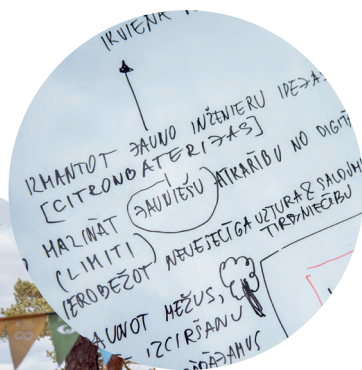 IKVIENA
IZMANTOT JAUNO INŽENIERU IDEJAS
[CITRONBATERIJAS]
MAZINĀT JAUNIEŠU ATKARĪBU NO DIGIT
(LIMITI)
IEROBEŽOT NEVESELĪGA UZTURA & SALDUM
TIRDZNIECĪBU
AUNOT MEŽUS,
IZCIRŠANU